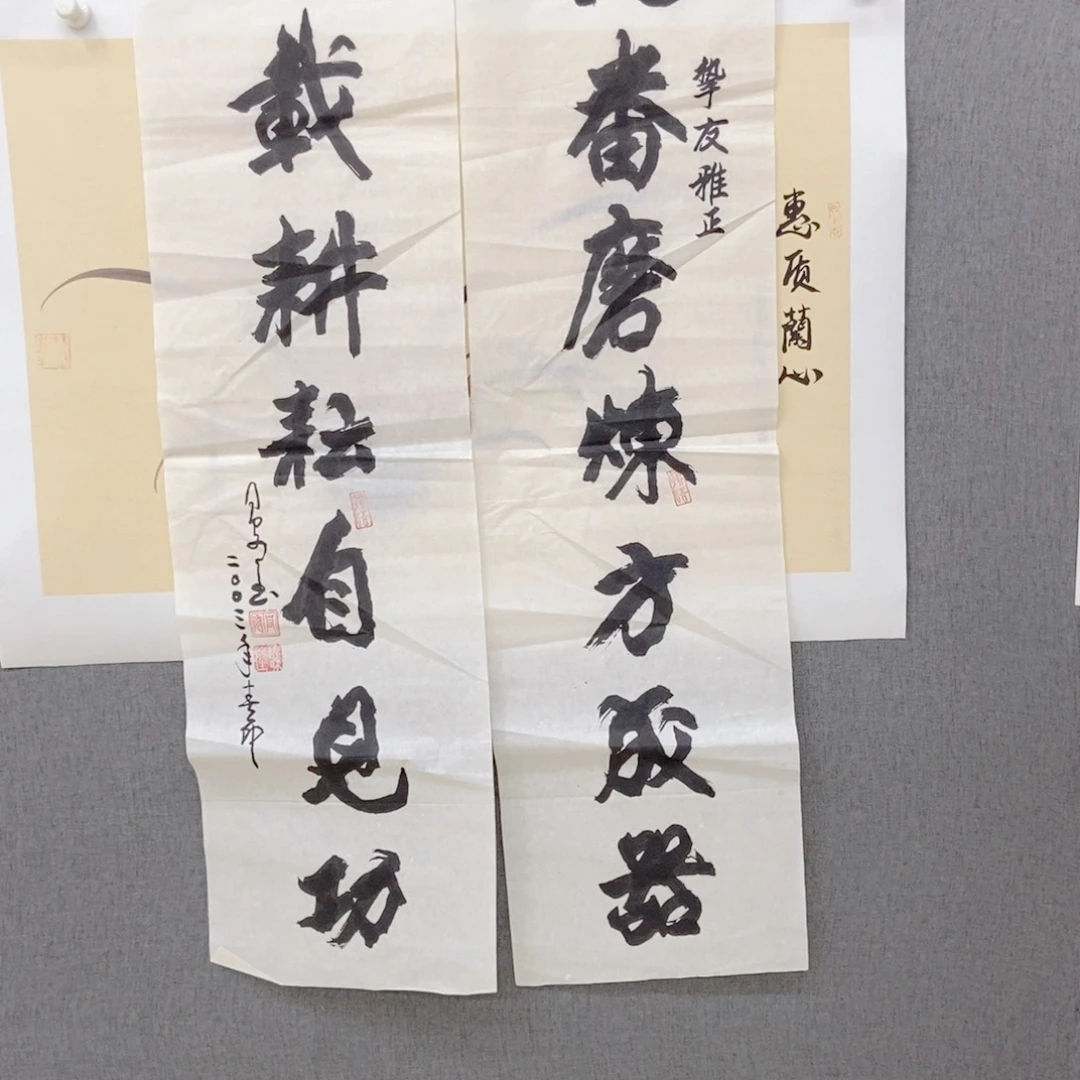 惠质蘭心
挚友雅正
番磨煉方成器
載耕耘自見功
二〇〇三年春节